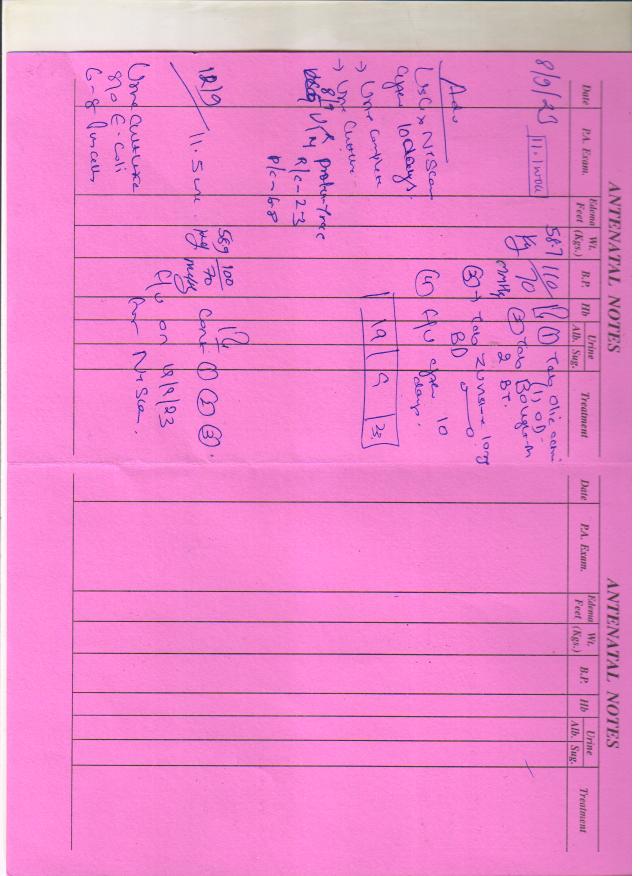 ANTENATAL NOTES
Date P.A. Exam. Edema Feet Wt. (Kgs.) B.P. Hb Urine Alb. Sug. Treatment
8/9/23 11.1 58.7 kg 110/70 mmHg (1) Tab
(1) OD
(2) Tab
2 BT.
Adv (3) → Tab long
NT Scan BD
after 10 days. (4) F/U after 10
→ Urine complete days.
→ Urine Culture 19 | 9 | 23
8/9 U R/M Protein-Trace
R/C-2-3
P/C-6-8
12/9 11.5 58.9 kg 100/70 mmHg cont (1) (2) (3).
F/U on 19/9/23
for NT Scan.
Urine Culture
g/o E. coli
6-8 Pus cells
ANTENATAL NOTES
Date P.A. Exam. Edema Feet Wt. (Kgs.) B.P. Hb Urine Alb. Sug. Treatment